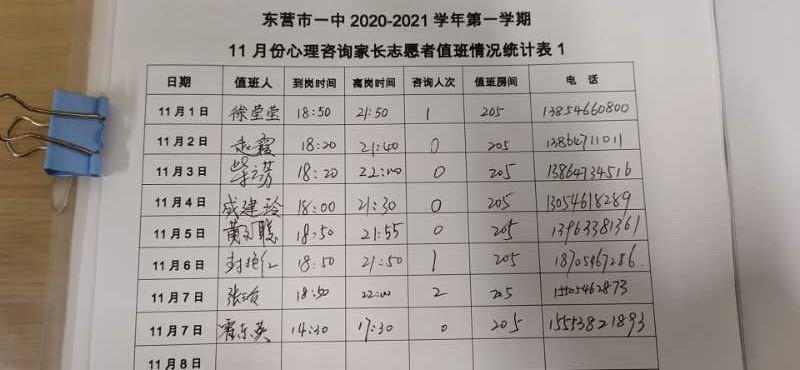 东营市一中 2020-2021 学年第一学期
11 月份心理咨询家长志愿者值班情况统计表 1
日期 值班人 到岗时间 离岗时间 咨询人次 值班房间 电 话
11 月 1 日 徐莹莹 18:50 21:50 1 205 13854660800
11 月 2 日 赵霞 18:20 21:40 0 205 13864711011
11 月 3 日 18:20 22:00 0 205 13864734516
11 月 4 日 成建玲 18:00 21:30 0 205 13054618289
11 月 5 日 18:50 21:55 0 205 13963381361
11 月 6 日 封艳仁 18:50 21:50 1 205 18705467286
11 月 7 日 18:50 22:00 2 205 15505462873
11 月 7 日 霍东英 14:30 17:30 0 205 15553821893
11 月 8 日